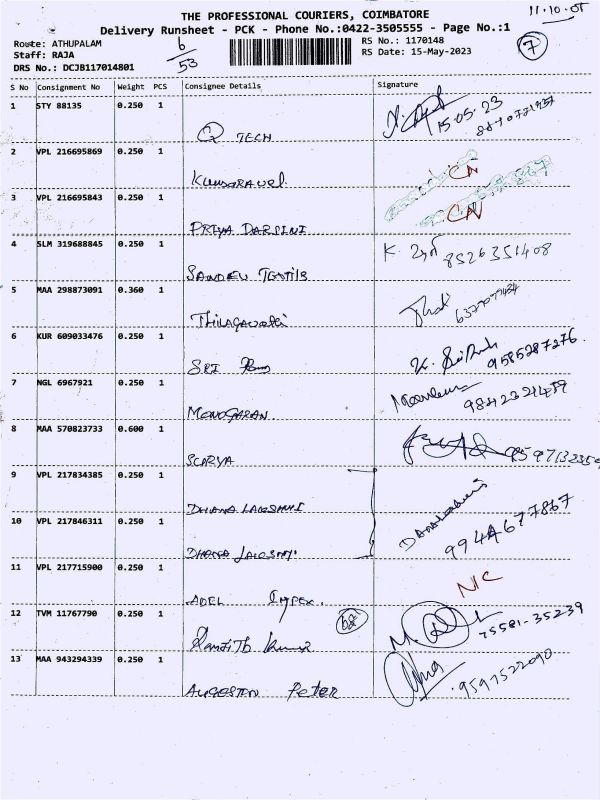 11.10.05
THE PROFESSIONAL COURIERS, COIMBATORE
Delivery Runsheet - PCK - Phone No.:0422-3505555 - Page No.:1
Route: ATHUPALAM 6 RS No.: 1170148 7
Staff: RAJA 53 RS Date: 15-May-2023
DRS No.: DCJB117014801
S No Consignment No Weight PCS Consignee Details Signature
1 STY 88135 0.250 1
Q TECH 15.05.23
2 VPL 216695869 0.250 1
CN
3 VPL 216695843 0.250 1
PRIYA DARSINI CN
4 SLM 319688845 0.250 1
K. 8526351408
5 MAA 298873091 0.360 1
6 KUR 609033476 0.250 1
SRI 9585287276
7 NGL 6967921 0.250 1
MONOGARAN
8 MAA 570823733 0.600 1
SURYA
9 VPL 217834385 0.250 1
DHANA LAKSHMI
10 VPL 217846311 0.250 1
DHANA LAKSHMI 9944677867
11 VPL 217715900 0.250 1
ADEL IMPEX. N/C
12 TVM 11767790 0.250 1
75581-35239
13 MAA 943294339 0.250 1
AUGESTEN PETER 9597522090